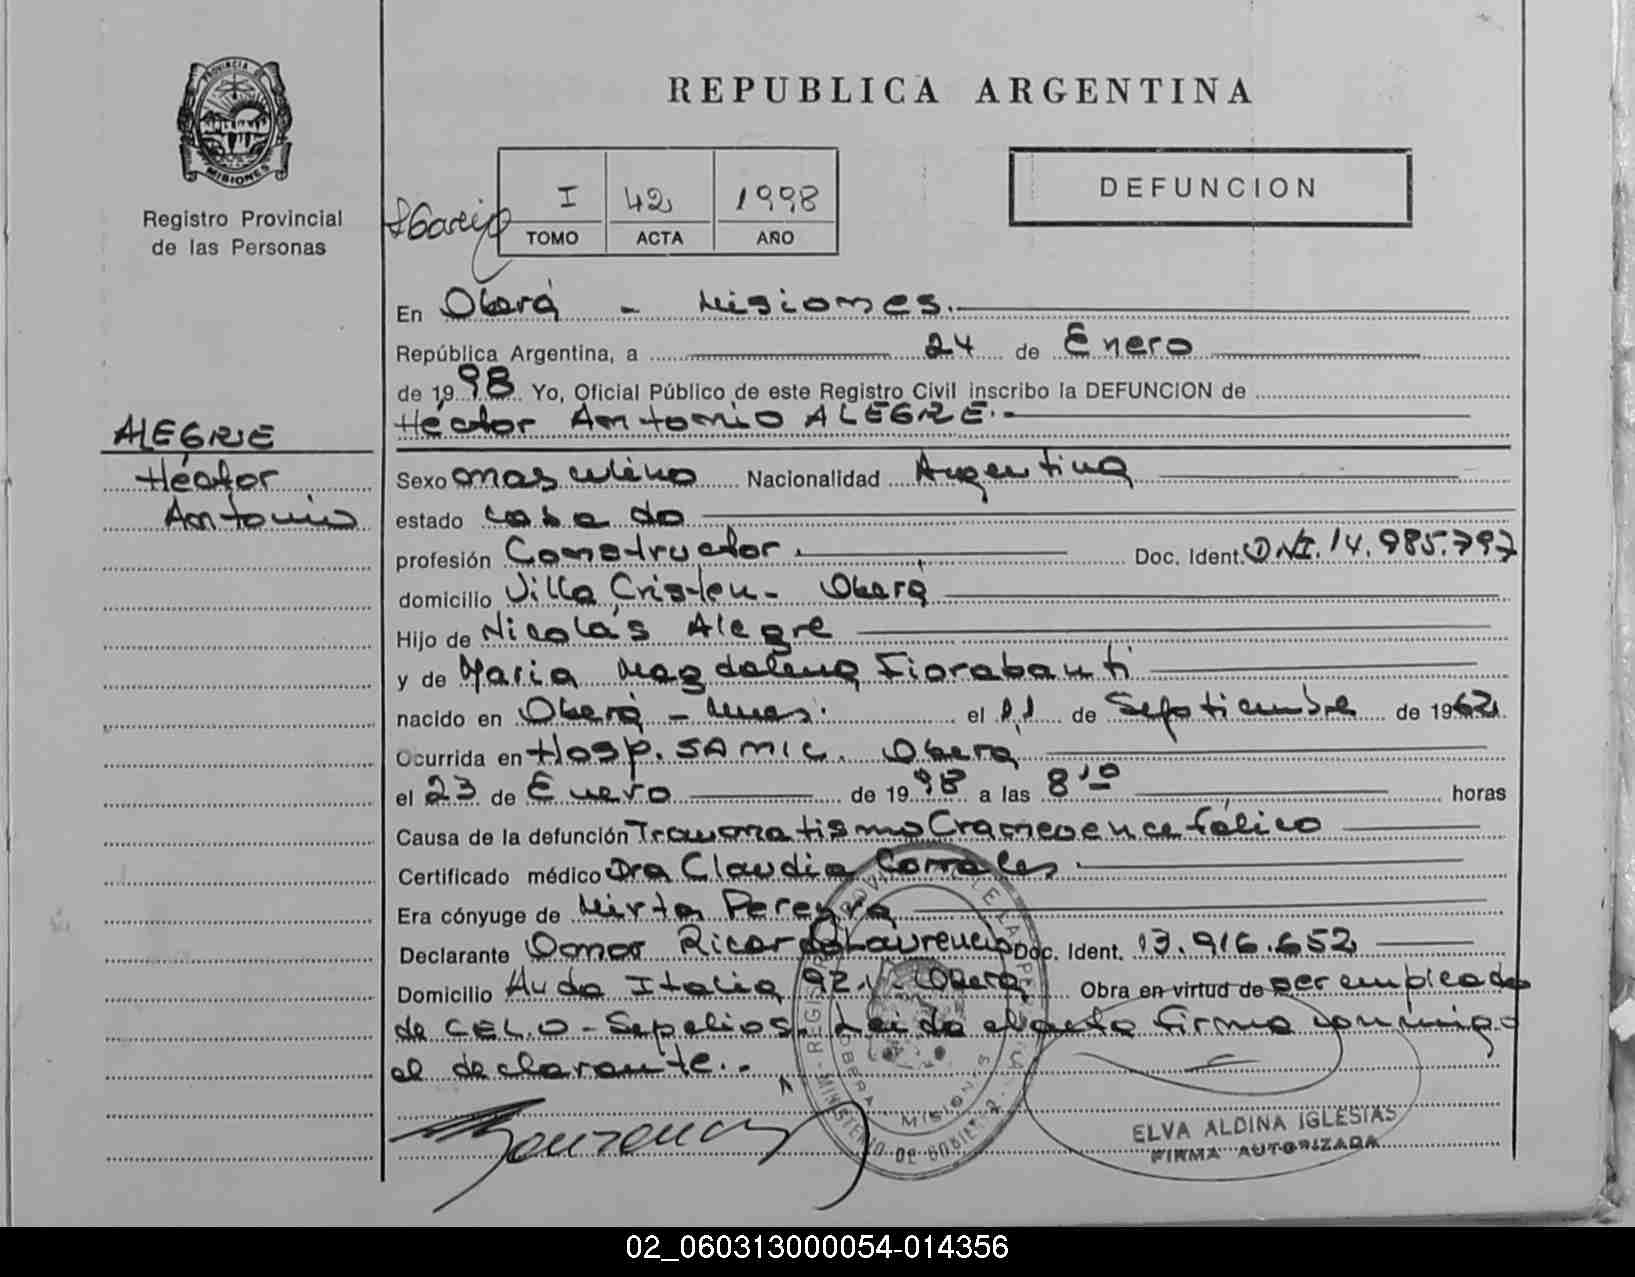 PROVINCIA DE
MISIONES
Registro Provincial
de las Personas
REPUBLICA ARGENTINA
I 42 1998
TOMO ACTA AÑO
DEFUNCION
En Oberá - Misiones.
República Argentina, a 24 de Enero
de 1998 Yo, Oficial Público de este Registro Civil inscribo la DEFUNCION de
Héctor Antonio ALEGRE.-
ALEGRE
Héctor
Antonio
Sexo masculino Nacionalidad Argentina
estado casado
profesión Constructor. Doc. Ident. DNI. 14.985.797
domicilio Villa Cristen - Oberá
Hijo de Nicolás Alegre
y de Maria Magdalena Fiorabanti
nacido en Oberá - Mnes. el 11 de Septiembre de 1962
Ocurrida en Hosp. SAMIC. Oberá
el 23 de Enero de 1998 a las 8 10 horas
Causa de la defunción Traumatismo Craneoencefálico
Certificado médico Dra Claudia Corrales.
Era cónyuge de Mirta Pereyra
Declarante Omar Ricardo Laurencio Doc. Ident. 13.916.652
Domicilio Avda Italia 921 - Oberá Obra en virtud de ser empleado
de C.E.L.O - Sepelios. Leida el acta firma conmigo
el declarante.-
OBERA - MISIONES
MINISTERIO DE GOBIERNO
ELVA ALDINA IGLESIAS
FIRMA AUTORIZADA
02_060313000054-014356